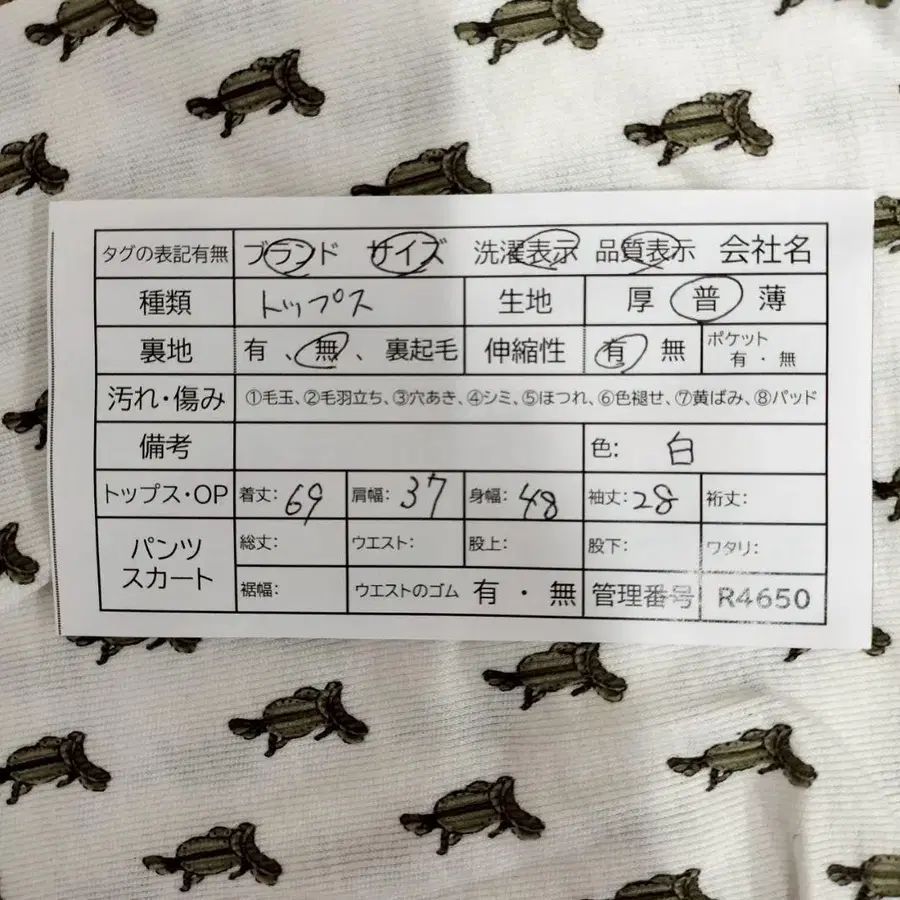 タグの表記有無 ブランド サイズ 洗濯表示 品質表示 会社名
種類 トップス 生地 厚 普 薄
裏地 有 、無 、裏起毛 伸縮性 有 無 ポケット 有 ・ 無
汚れ・傷み ①毛玉、②毛羽立ち、③穴あき、④シミ、⑤ほつれ、⑥色褪せ、⑦黄ばみ、⑧パッド
備考 色: 白
トップス・OP 着丈: 69 肩幅: 37 身幅: 48 袖丈: 28 裄丈:
パンツ スカート 総丈: ウエスト: 股上: 股下: ワタリ:
裾幅: ウエストのゴム 有 ・ 無 管理番号 R4650